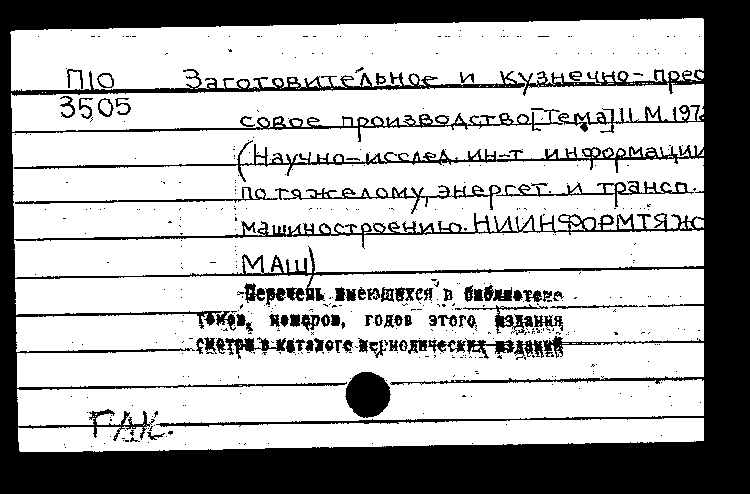 П10 Заготовительное и кузнечно-прес
3505
совое производство [Тема] 11 М. 1972
(Научно-исслед. ин-т информации
по тяжелому, энергет. и трансп.
машиностроению. НИИНФОРМТЯЖ
МАШ)
Перечень имеющихся в библиотеке
томов, номеров, годов этого издания
смотри в каталоге периодических изданий
ГАК.